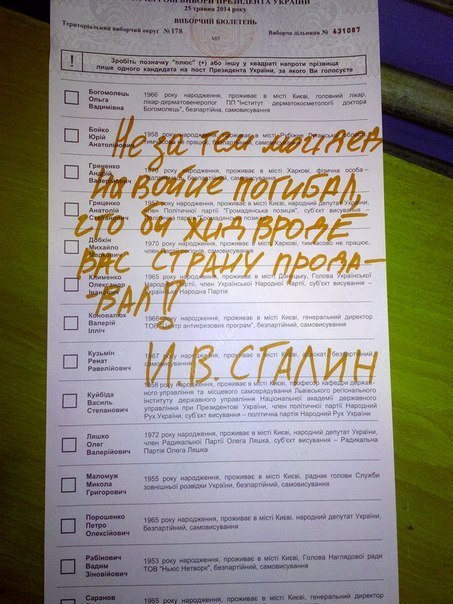 ЧЕРГОВІ ВИБОРИ ПРЕЗИДЕНТА УКРАЇНИ
25 травня 2014 року
ВИБОРЧИЙ БЮЛЕТЕНЬ
Територіальний виборчий округ №178
МП
Виборча дільниця № 631087
! Зробіть позначку "плюс" (+) або іншу у квадраті напроти прізвища
лише одного кандидата на пост Президента України, за якого Ви голосуєте
Богомолець
Ольга
Вадимівна
1966 року народження, проживає в місті Києві, головний лікар,
лікар-дерматовенеролог ПП "Інститут дерматокосметології доктора
Богомолець", безпартійна, самовисування
Бойко
Юрій
Анатолійович
1958
Гриненко
1970 року народження, проживає в місті Харкові, фізична особа –
Гриценко
Анатолій
Степанович
член Політичної партії "Громадянська позиція", суб'єкт висування –
Добкін
Михайло
1970 року народження, проживає в місті Харкові, тимчасово не працює,
Клименко
Олександр
1965 року народження, проживає в місті Донецьку, Голова Української
Народної Партії, член Української Народної Партії, суб'єкт висування –
Українська Народна Партія
Коновалюк
Валерій
Ілліч
1966 року народження, проживає в місті Києві, генеральний директор
ТОВ "Центр антикризових програм", безпартійний, самовисування
Кузьмін
Ренат
Равелійович
1967 року народження, проживає в місті Києві, адвокат, безпартійний,
самовисування
Куйбіда
Василь
Степанович
1958 року народження, проживає в місті Києві, професор кафедри держав-
ного управління та місцевого самоврядування Львівського регіонального
інституту державного управління Національної академії державного
управління при Президентові України, член політичної партії Народний
Рух України, суб'єкт висування – політична партія Народний Рух України
Ляшко
Олег
Валерійович
1972 року народження, проживає в місті Києві, народний депутат України,
член Радикальної Партії Олега Ляшка, суб'єкт висування – Радикальна
Партія Олега Ляшка
Маломуж
Микола
Григорович
1955 року народження, проживає в місті Києві, радник голови Служби
зовнішньої розвідки України, безпартійний, самовисування
Порошенко
Петро
Олексійович
1965 року народження, проживає в місті Києві, народний депутат України,
безпартійний, самовисування
Рабінович
Вадим
Зіновійович
1953 року народження, проживає в місті Києві, Голова Наглядової ради
ТОВ "Ньюс Нетворк", безпартійний, самовисування
Саранов
1965 року народження, проживає в місті Києві, генеральний директор
Не за тем мой дед
На войне погибал,
сто бы жид вроде
вас страну прода-
-вал!!
И.В. СТАЛИН